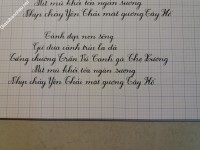 Mịt mù khói tỏa ngàn sương
Nhịp chày Yên Thái mặt gương Tây Hồ
Cảnh đẹp non sông
Gió đưa cành trúc la đà
Tiếng chuông Trấn Vũ canh gà Thọ Xương
Mịt mù khói tỏa ngàn sương
Nhịp chày Yên Thái mặt gương Tây Hồ